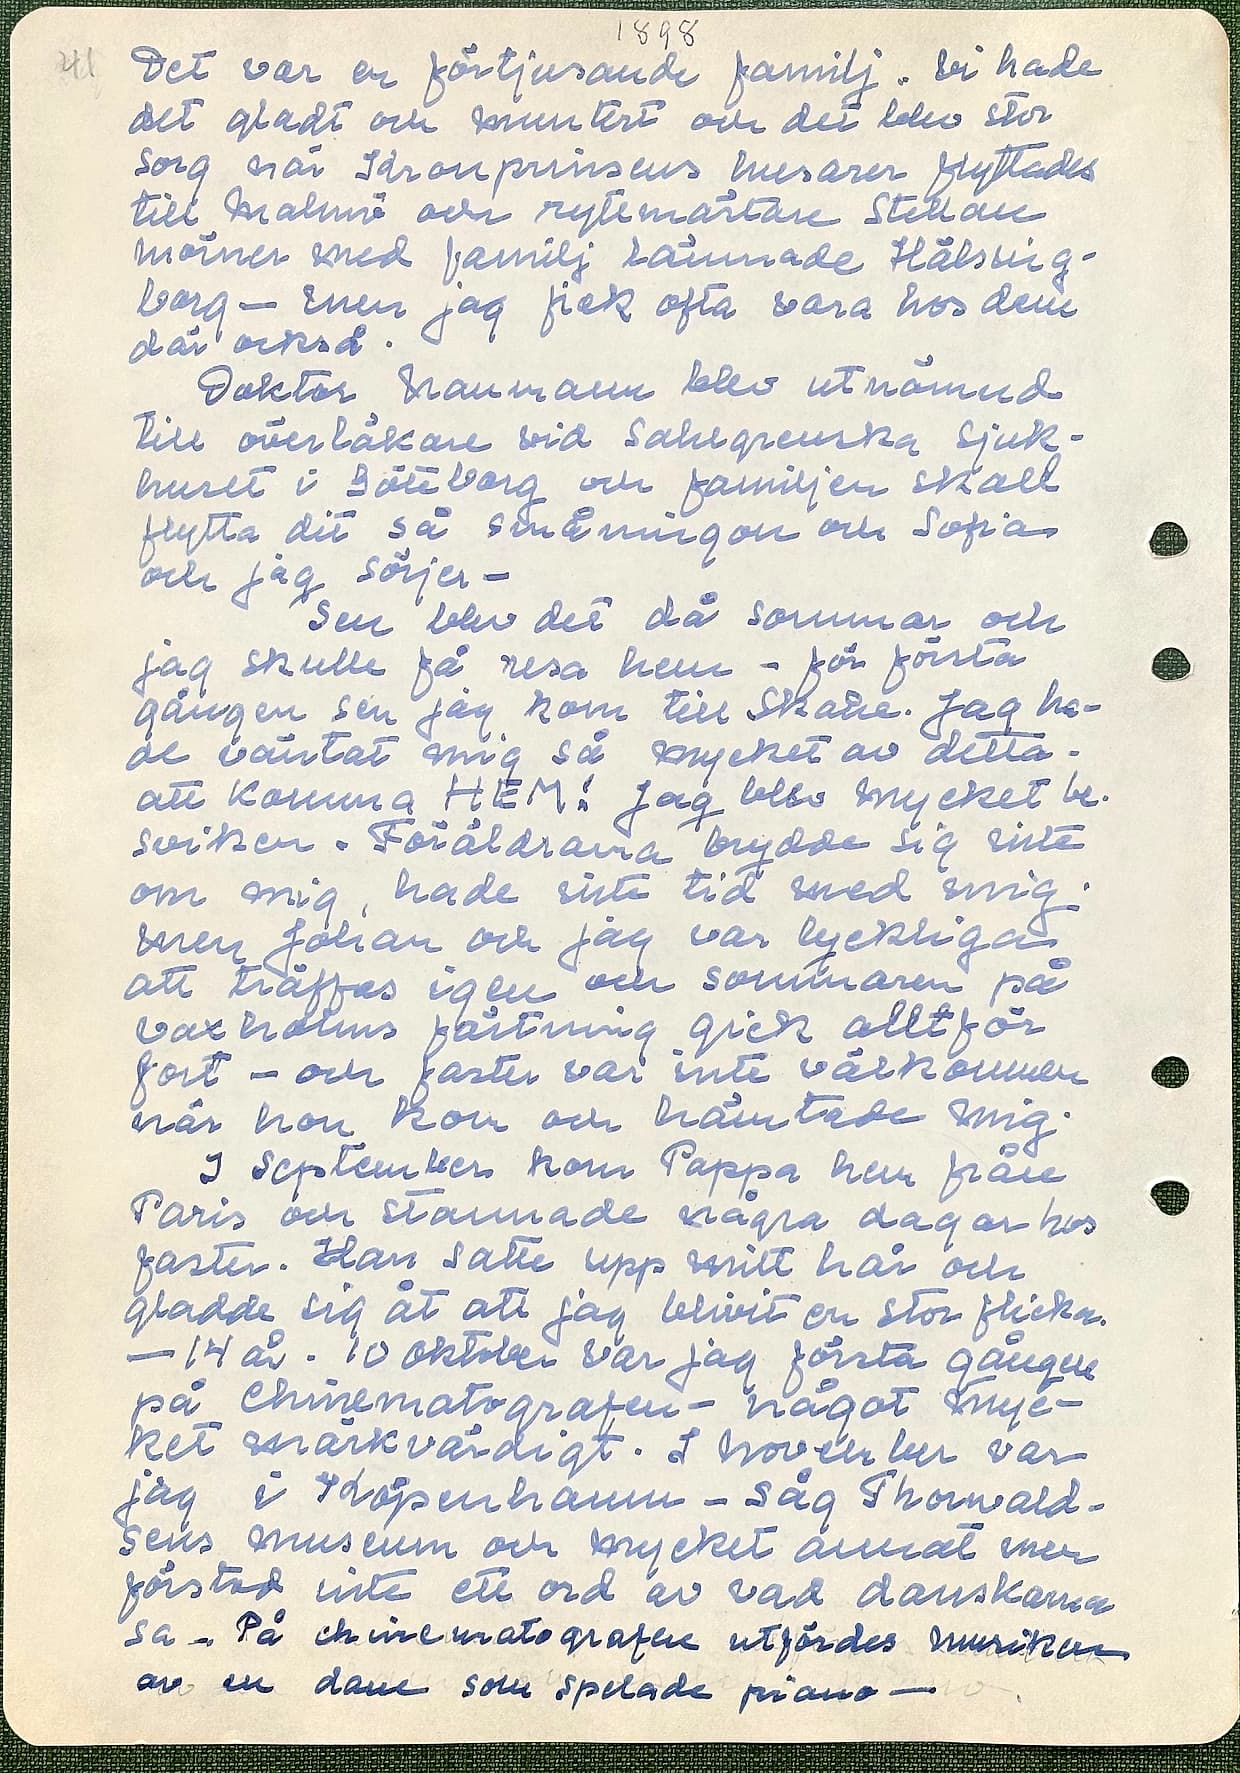 1898
41
Det var en förtjusande familj. Vi hade
det gladt och muntert och det blev stor
sorg när Kronprinsens husarer flyttades
till Malmö och ryttmästare Stellan
Mörner med familj lämnade Hälsing-
borg — men jag fick ofta vara hos dem
där också.
Doktor Naumann blev utnämnd
till överläkare vid Sahlgrenska Sjuk-
huset i Göteborg och familjen skall
flytta dit så småningom och Sofia
och jag sörjer —
Sen blev det då sommar och
jag skulle få resa hem - för första
gången sen jag kom till Skåne. Jag ha-
de väntat mig så mycket av detta -
att komma HEM! Jag blev mycket be-
sviken. Föräldrarna brydde sig inte
om mig, hade inte tid med mig.
men Johan och jag var lyckliga
att träffas igen och sommaren på
Vaxholms fästning gick alltför
fort — och faster var inte välkommen
när hon kom och hämtade mig.
I September kom Pappa hem från
Paris och stannade några dagar hos
faster. Han satte upp mitt hår och
gladde sig åt att jag blivit en stor flicka.
— 14 år. 10 oktober var jag första gången
på Chinematografen - något myc-
ket märkvärdigt. I November var
jag i Köpenhamn - såg Thorvald-
sens museum och mycket annat men
förstod inte ett ord av vad danskarna
sa - På chinematografen utfördes musiken
av en dam som spelade piano —